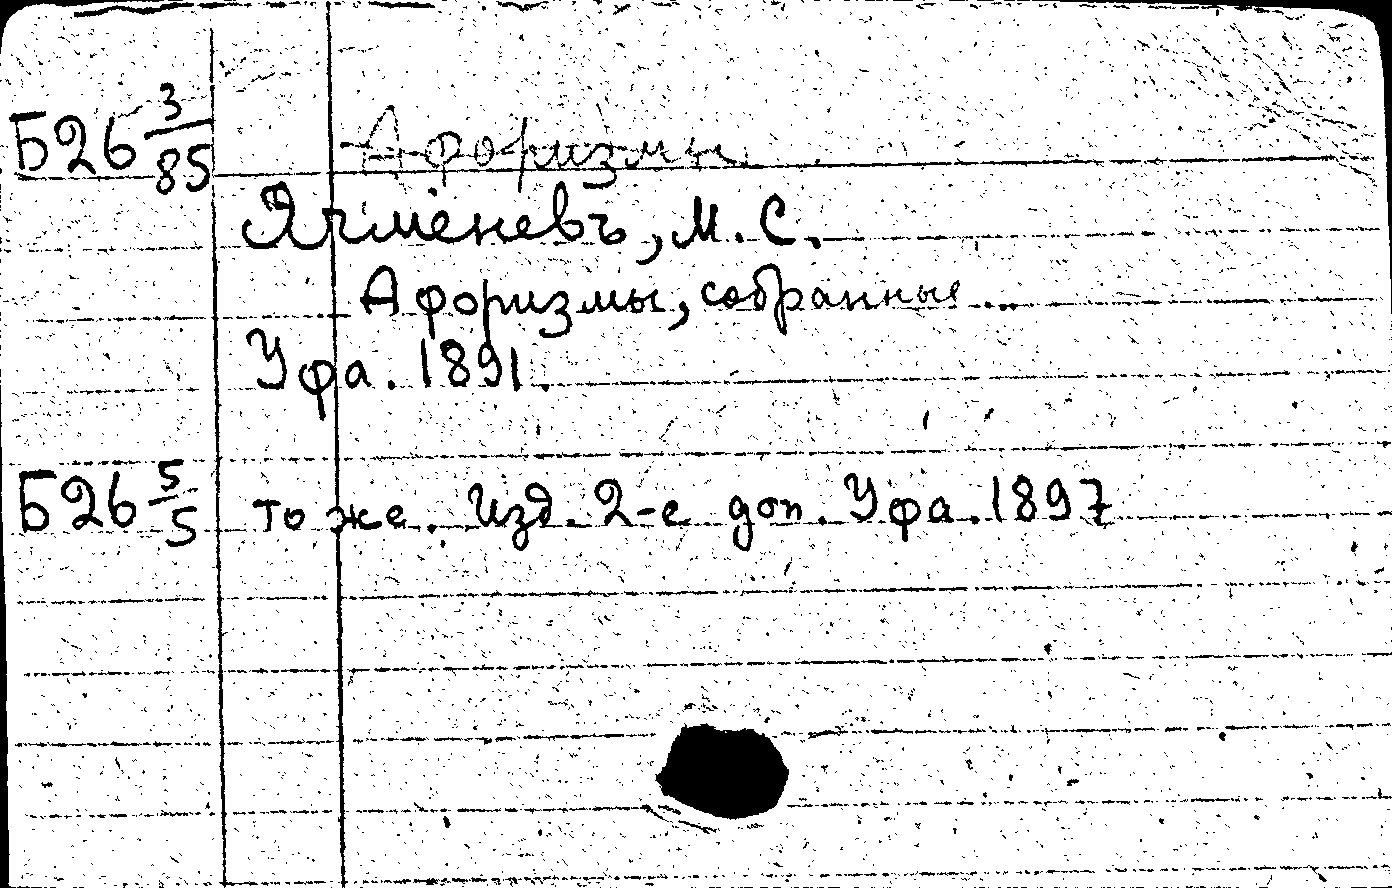 Б26 3/85 Афоризмы
Ячменевъ, М. С.
Афоризмы, собранные...
Уфа. 1891.
Б26 5/5 то же. Изд. 2-е доп. Уфа. 1897